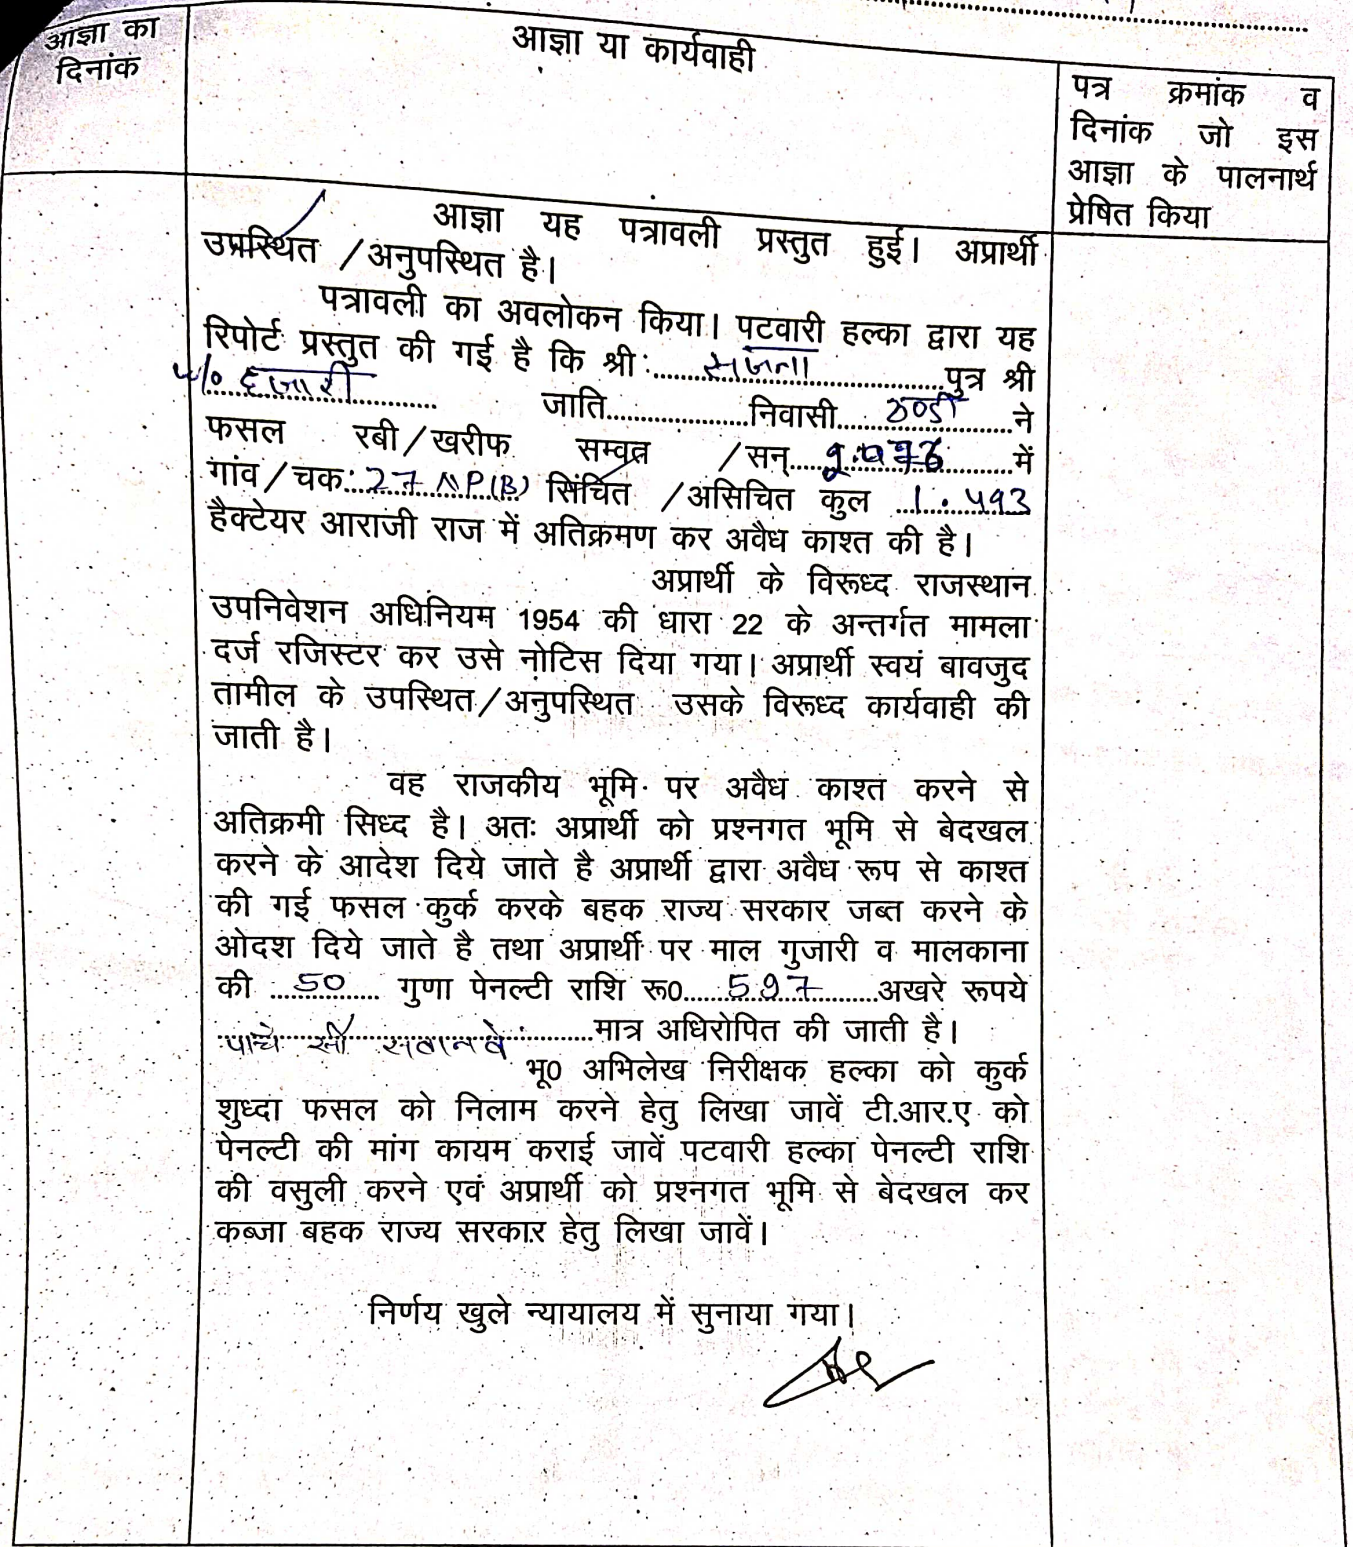 आज्ञा का
दिनांक
आज्ञा या कार्यवाही
पत्र क्रमांक व
दिनांक जो इस
आज्ञा के पालनार्थ
प्रेषित किया
आज्ञा यह पत्रावली प्रस्तुत हुई। अप्रार्थी
उपस्थित /अनुपस्थित है।
पत्रावली का अवलोकन किया। पटवारी हल्का द्वारा यह
रिपोर्ट प्रस्तुत की गई है कि श्री:..........सजना..........पुत्र श्री
w/o हजारी.......... जाति..........निवासी..........ने
फसल रबी/खरीफ सम्वत /सन्....................में
गांव/चक:..27 NP(B) सिंचित /असिचित कुल ..1.493
हैक्टेयर आराजी राज में अतिक्रमण कर अवैध काश्त की है।
अप्रार्थी के विरूध्द राजस्थान
उपनिवेशन अधिनियम 1954 की धारा 22 के अन्तर्गत मामला
दर्ज रजिस्टर कर उसे नोटिस दिया गया। अप्रार्थी स्वयं बावजुद
तामील के उपस्थित/अनुपस्थित उसके विरूध्द कार्यवाही की
जाती है।
वह राजकीय भूमि पर अवैध काश्त करने से
अतिक्रमी सिध्द है। अतः अप्रार्थी को प्रश्नगत भूमि से बेदखल
करने के आदेश दिये जाते है अप्रार्थी द्वारा अवैध रूप से काश्त
की गई फसल कुर्क करके बहक राज्य सरकार जब्त करने के
ओदश दिये जाते है तथा अप्रार्थी पर माल गुजारी व मालकाना
की ....50.... गुणा पेनल्टी राशि रू0......597......अखरे रूपये
पांच सौ सतानवे..........मात्र अधिरोपित की जाती है।
भू0 अभिलेख निरीक्षक हल्का को कुर्क
शुध्दा फसल को निलाम करने हेतु लिखा जावें टी.आर.ए को
पेनल्टी की मांग कायम कराई जावें पटवारी हल्का पेनल्टी राशि
की वसुली करने एवं अप्रार्थी को प्रश्नगत भूमि से बेदखल कर
कब्जा बहक राज्य सरकार हेतु लिखा जावें।
निर्णय खुले न्यायालय में सुनाया गया।